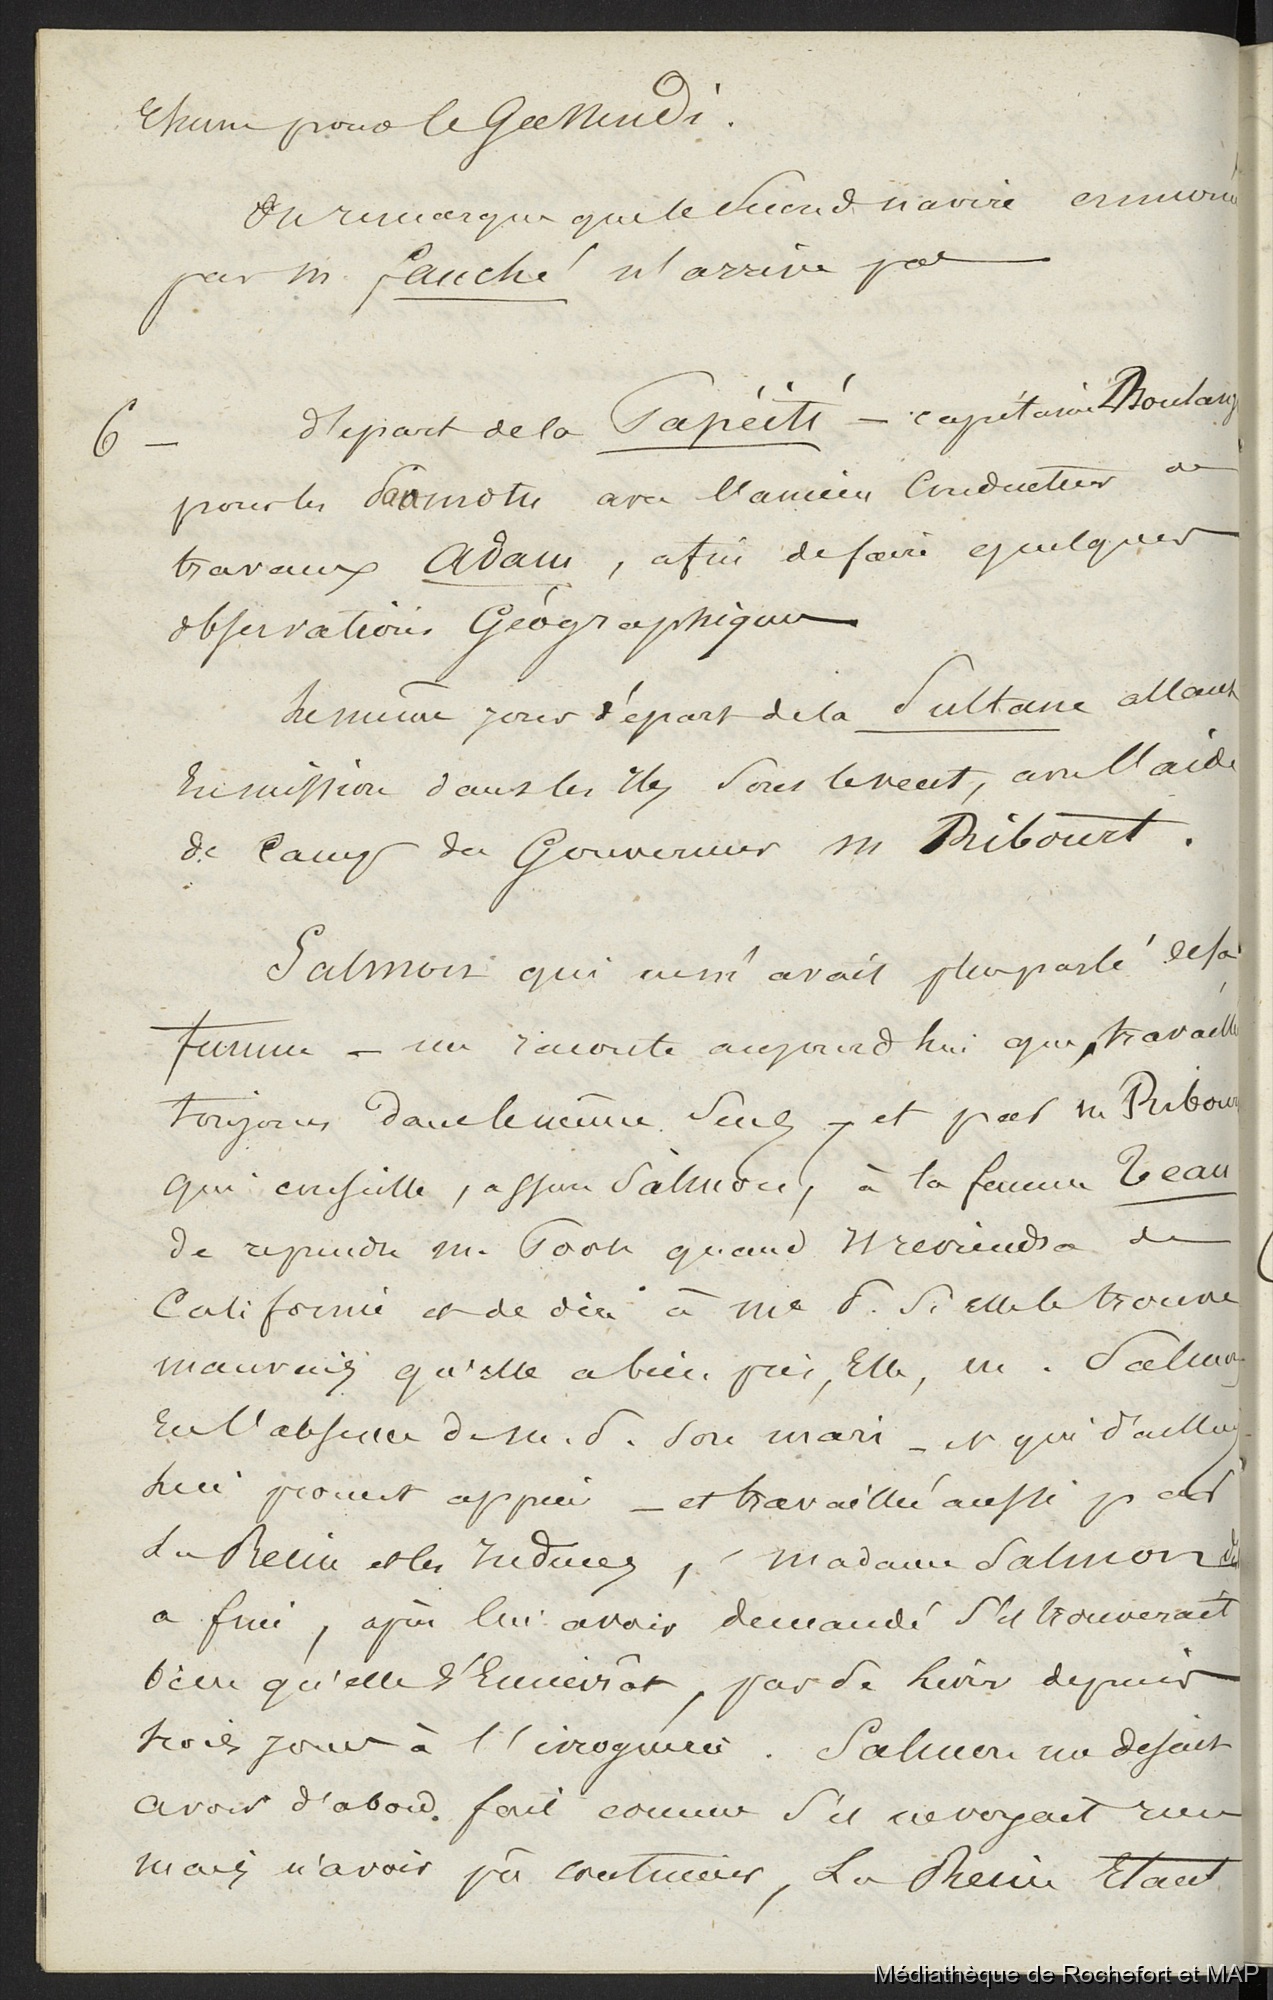 rhum pour le Gassendi.
On remarque que le second navire annoncé
par m fauché n'arrive pas
6 — départ de la Papéiti — capitaine Boulang
pour les Paomotu avec l'ancien conducteur de
travaux Adam, afin de faire quelques
observations Géographiques.
le même jour départ de la Sultane allant
en mission dans les Iles sous le vent, avec l'aide
de camp du Gouverneur m Ribourt.
Salmon qui ne m'avait plus parlé de sa
femme — me raconte aujourd'hui que, travaillé
toujours dans le même sens — et par m Ribour
qui conseille, assure Salmon, à la femme
de reprendre m. quand il reviendra de
Californie et de dire à me S. si elle le trouve
mauvais qu'elle a bien pris, Elle, m. Salmon
en l'absence de me. S. son mari — et qui d'ailleurs
lui promet appui — et travaillée aussi par
La Reine et les Indiens, madame Salmon
a fini, après lui avoir demandé s'il trouverait
bien qu'elle s'enivrât, par se livrer depuis
trois jours à l'ivrognerie. Salmon me disait
avoir d'abord fait comme s'il ne voyait rien
mais n'avoir pû continuer, La Reine étant
Médiathèque de Rochefort et MAP